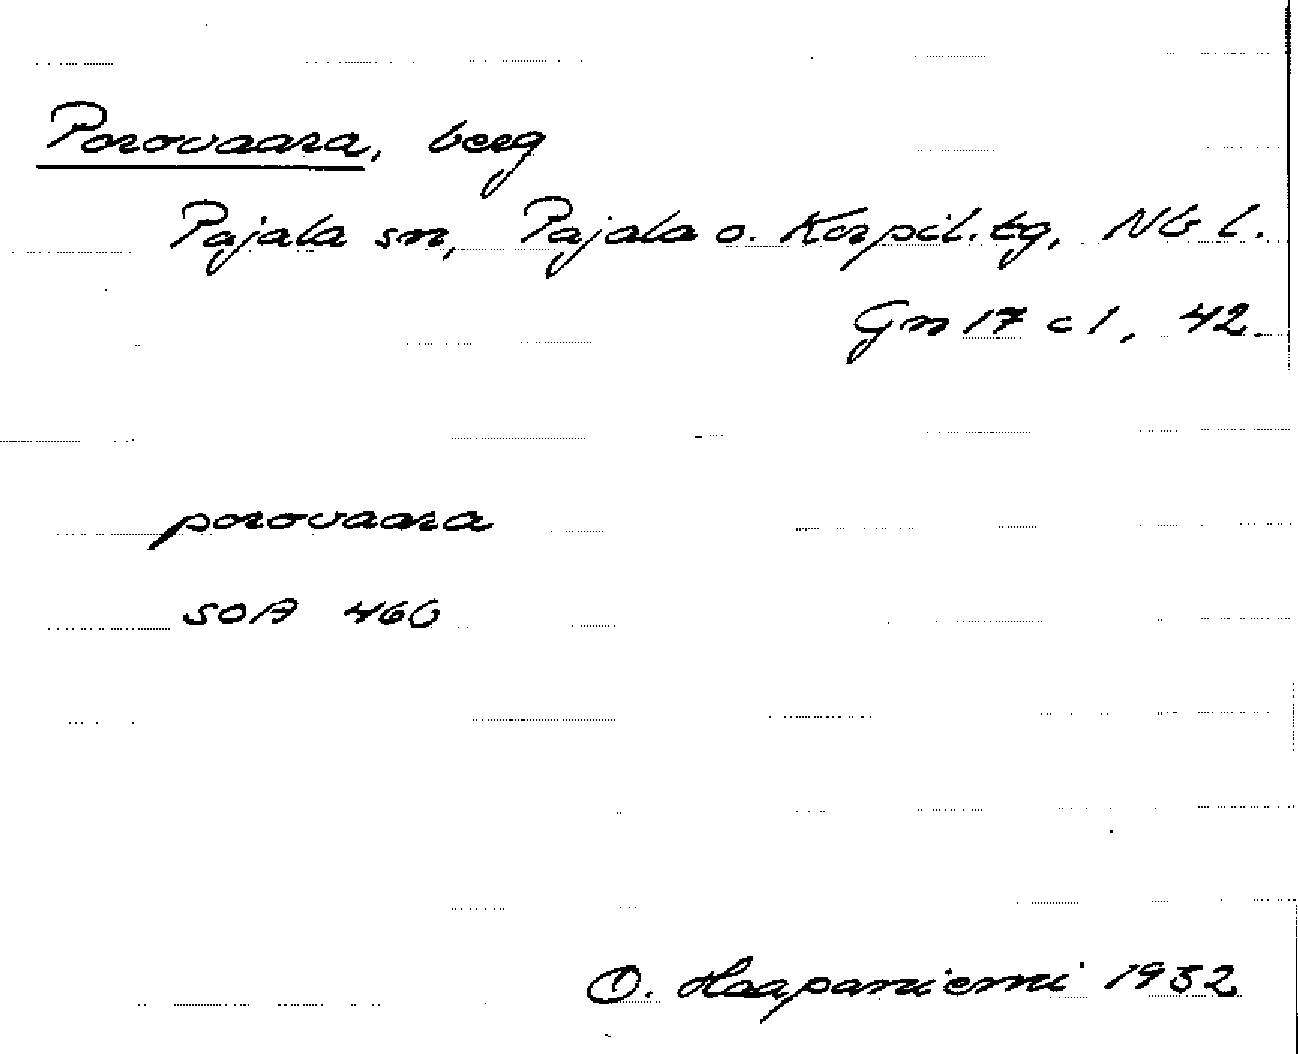 Porovaara, berg
Pajala sn, Pajala o. Korpil. tg, Nb l.
Gn 17 c 1, 42.
porovaara
SOA 460
O. Haapaniemi 1932